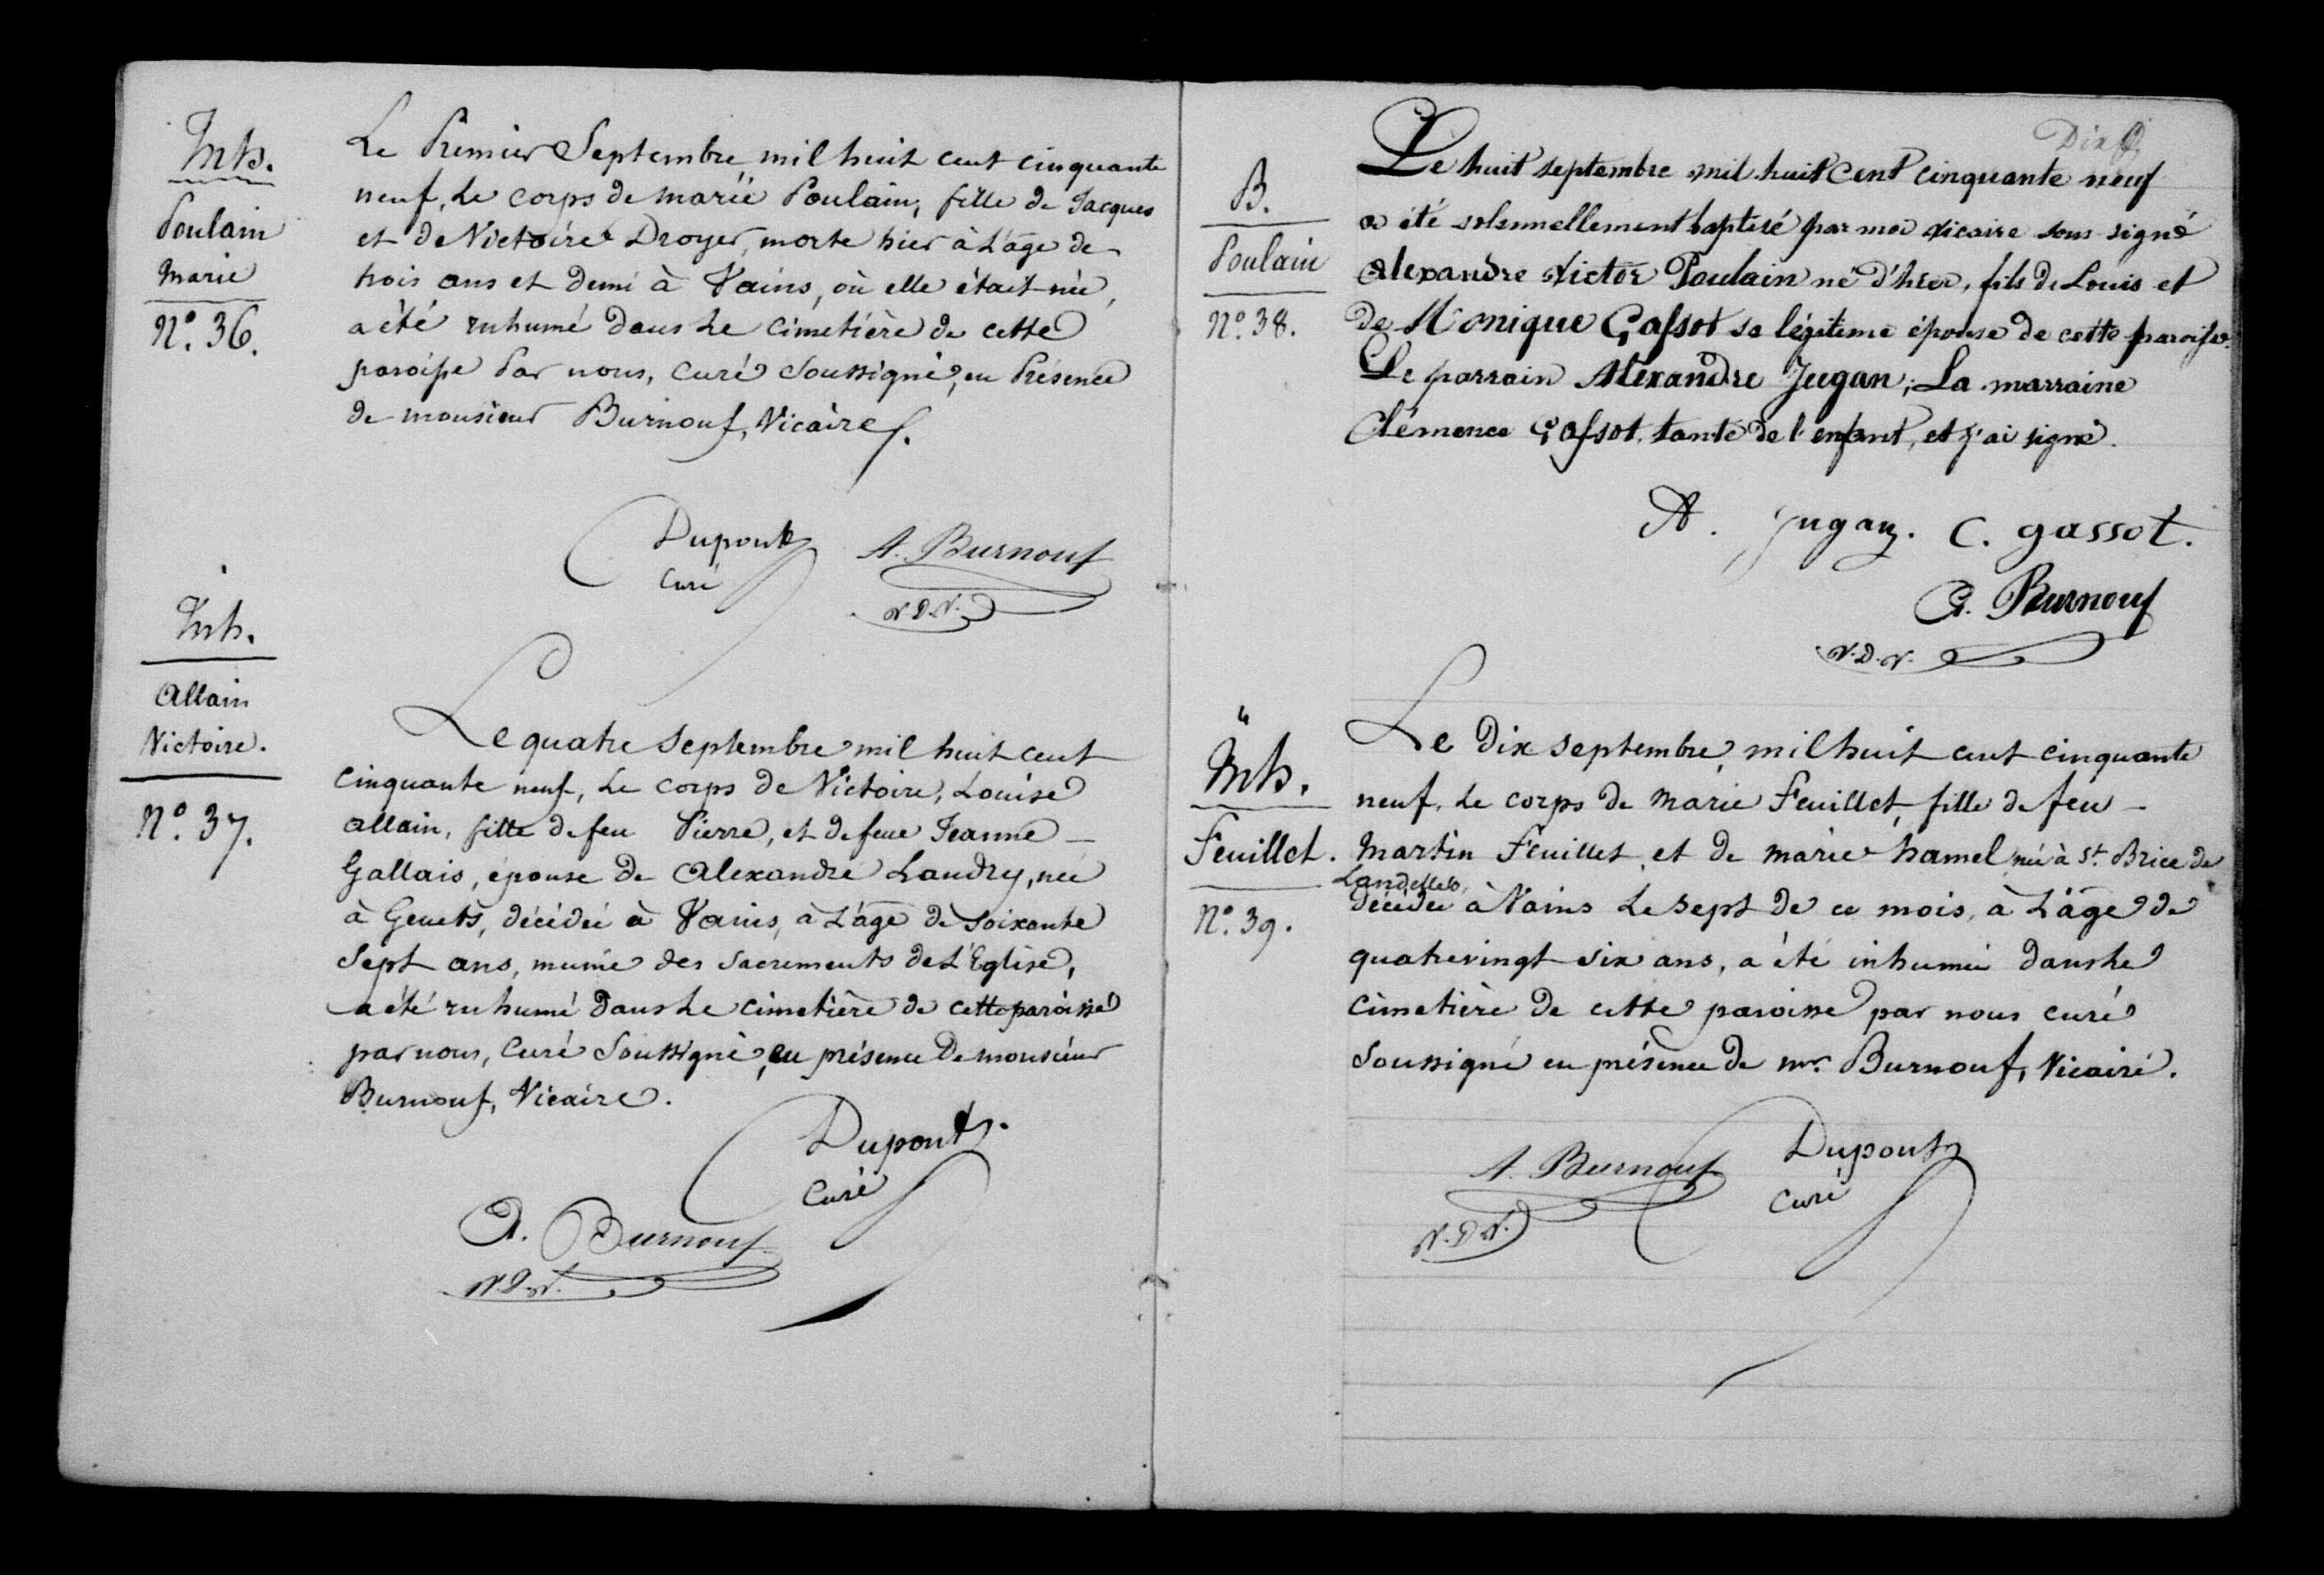 Inh.
Poulain
Marie
N.º 36.
Le Premier Septembre mil huit cent cinquante
neuf, le corps de marie Poulain, fille de Jacques
et de Victoire Droyer, morte hier à l'âge de
trois ans et demi à Vains, où elle était née,
a été inhumé dans le cimetière de cette
paroisse Par nous, curé soussigné, en Présence
de monsieur Burnouf, Vicaire.
Dupont A. Burnouf
Curé
V.D.V.
Inh.
Allain
Victoire.
N.º 37.
Le quatre septembre mil huit cent
cinquante neuf, le corps de Victoire, Louise
allain, fille de feu Pierre, et de feue Jeanne
Gallais, épouse de Alexandre Landry, née
à Genets, décédée à Vains, à l'âge de soixante
sept ans, munie des sacrements de L'Eglise,
a été inhumé dans le cimetière de cette paroisse
par nous, Curé Soussigné, en présence de monsieur
Burnouf, Vicaire.
Dupont.
Curé
A. Burnouf
V.D.V.
B.
Poulain
N.º 38.
Le huit septembre mil huit cent cinquante neuf
a été solennellement baptisé par moi vicaire sous signé
Alexandre Victor Poulain né d'hier, fils de Louis et
de Monique Gassot sa légitime épouse de cette paroisse.
Le parrain Alexandre Jugan, La marraine
Clémence Gassot, tante de l'enfant, et j'ai signé.
A. Jugan. C. gassot.
A. Burnouf
V.D.V.
Inh.
Feuillet.
N.º 39.
Le Dix septembre, mil huit cent cinquante
neuf, le corps de Marie Feuillet, fille de feu
Martin Feuillet, et de marie hamel née à St. Brice de
Landelles,
décédée à Vains le sept de ce mois, à l'âge de
quatrevingt six ans, a été inhumée dans le
cimetière de cette paroisse par nous curé
soussigné en présence de mr. Burnouf, Vicaire.
A. Burnouf Dupont
Curé
V.D.V.